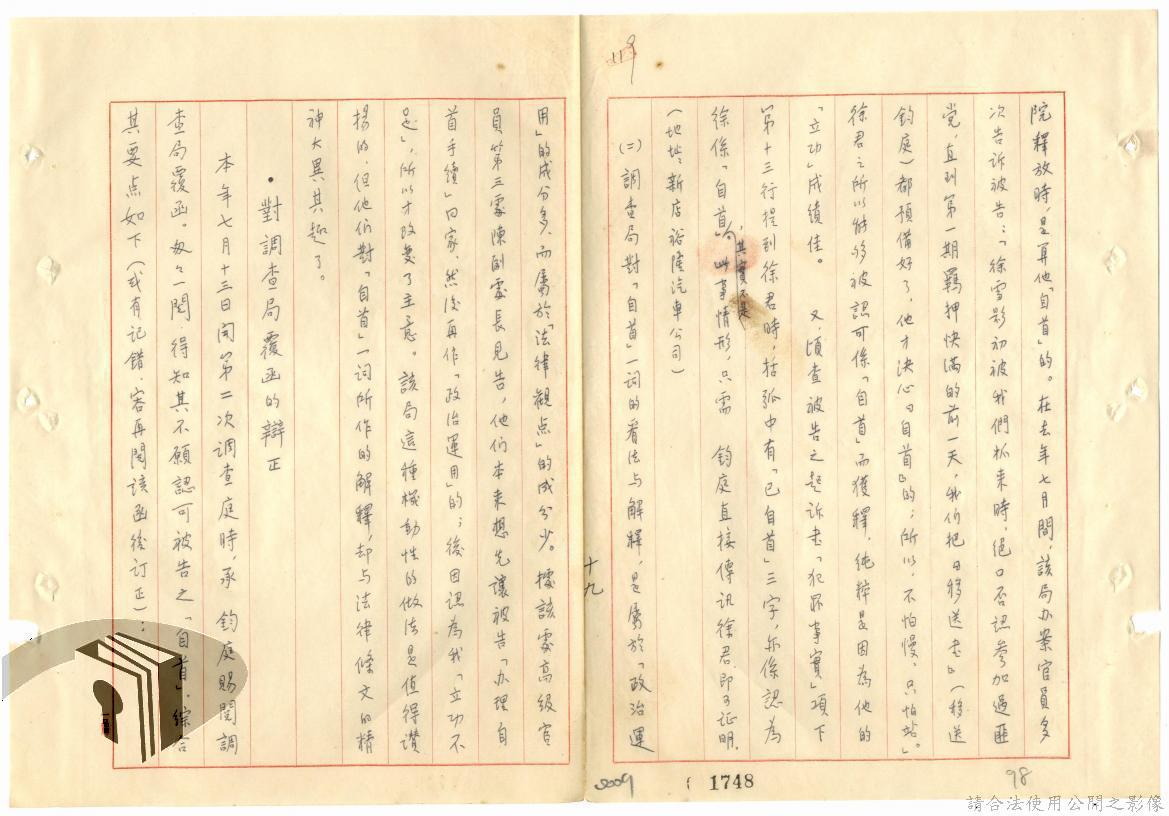 院釋放時，是算他「自首」的。在去年七月間，該局办案官員多
次告訴被告：「徐雪影初被我們抓来時，絕口否認參加過匪
党，直到第一期羈押快滿的前一天，我们把『移送書』（移送
鈞庭）都預備好了，他才決心『自首』的；所以，不怕慢，只怕站。」
徐君之所以能夠被認可係「自首」而獲釋，純粹是因為他的
「立功」成績佳。　又，頃查被告之起訴書「犯罪事實」項下
第十三行提到徐君時，括弧中有「已自首」三字，亦係認為
徐係「自首」，其實不是。此事情形，只需　鈞庭直接傳訊徐君，即可証明。
（地址：新店裕隆汽車公司）
㈡調查局對「自首」一詞的看法与解釋，是屬於「政治運
十九
用」的成分多，而屬於「法律觀点」的成分少。據該處高級官
員第三處陳副處長見告，他们本来想先讓被告「办理自
首手續」回家，然後再作「政治運用」的；後因認為我「立功不
足」，所以才改変了主意。該局這種機動性的做法是值得讚
揚的，但他们對「自首」一詞所作的解釋，却与法律條文的精
神大異其趣了。
•對調查局覆函的辯正
本年七月十三日開第二次調查庭時，承　鈞庭賜閱調
查局覆函。匆匆一閱，得知其不願認可被告之「自首」，綜合
其要点如下（或有記錯，容再閱該函後訂正）：
119
2009
1748
98
請合法使用公開之影像